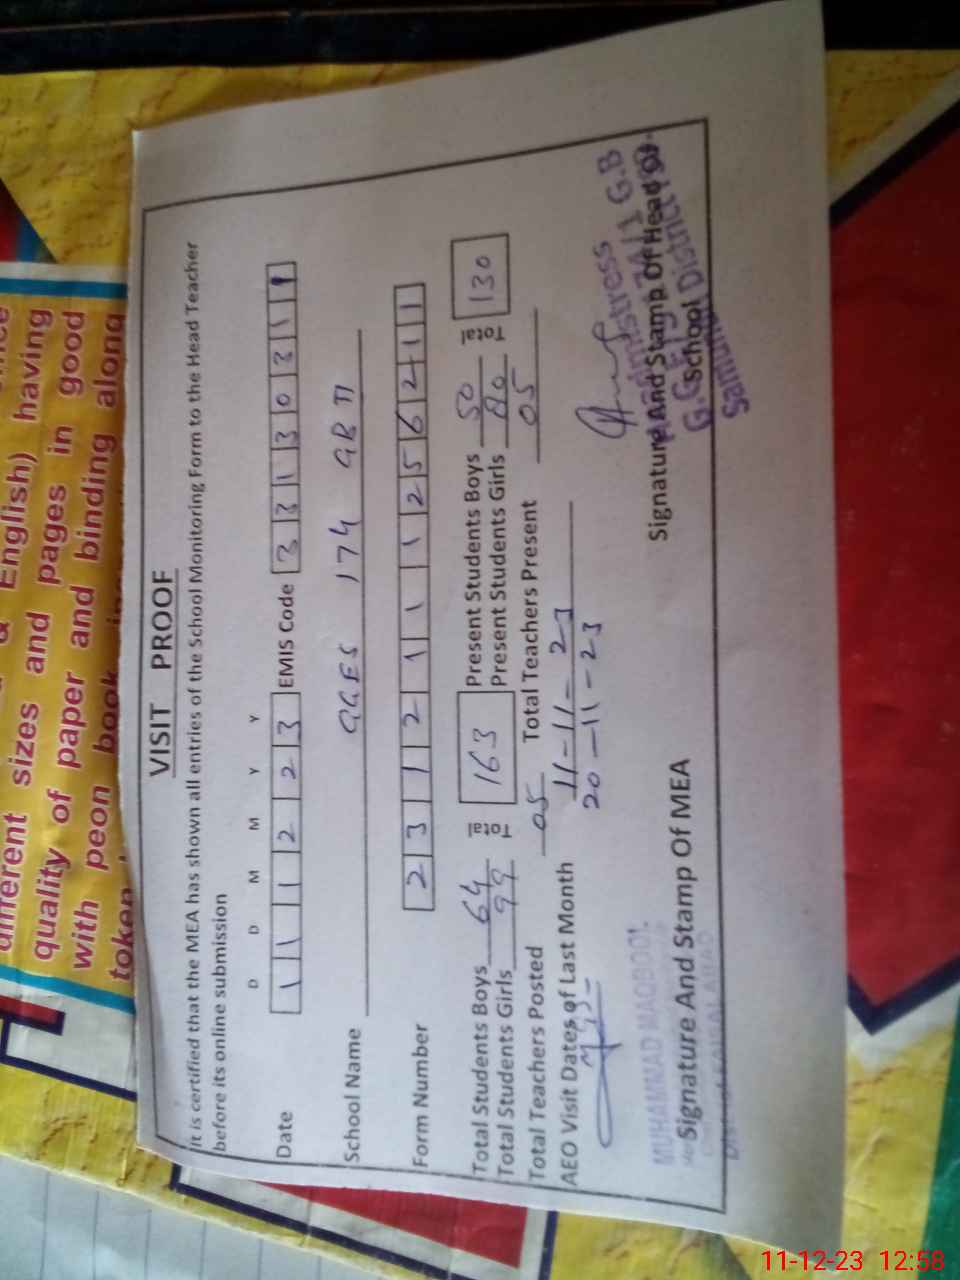 different sizes and pages in good
quality of paper and binding along
with peon book
token
English) having
VISIT PROOF
It is certified that the MEA has shown all entries of the School Monitoring Form to the Head Teacher
before its online submission
D D M M Y Y
Date 1 1 1 2 2 3 EMIS Code 3 3 1 3 0 3 1 1
School Name GGES 174 GB II
Form Number 2 3 1 2 1 1 1 1 2 5 6 2 1 1
Total Students Boys 64 Total 163 Present Students Boys 50 Total 130
Total Students Girls 99 Present Students Girls 80
Total Teachers Posted 05 Total Teachers Present 05
AEO Visit Dates of Last Month 11-11-23
20-11-23
MUHAMMAD MAQBOOL
Signature And Stamp Of MEA
Headmistress
Signature And Stamp Of Head Of
School
G.B
District
11-12-23 12:58